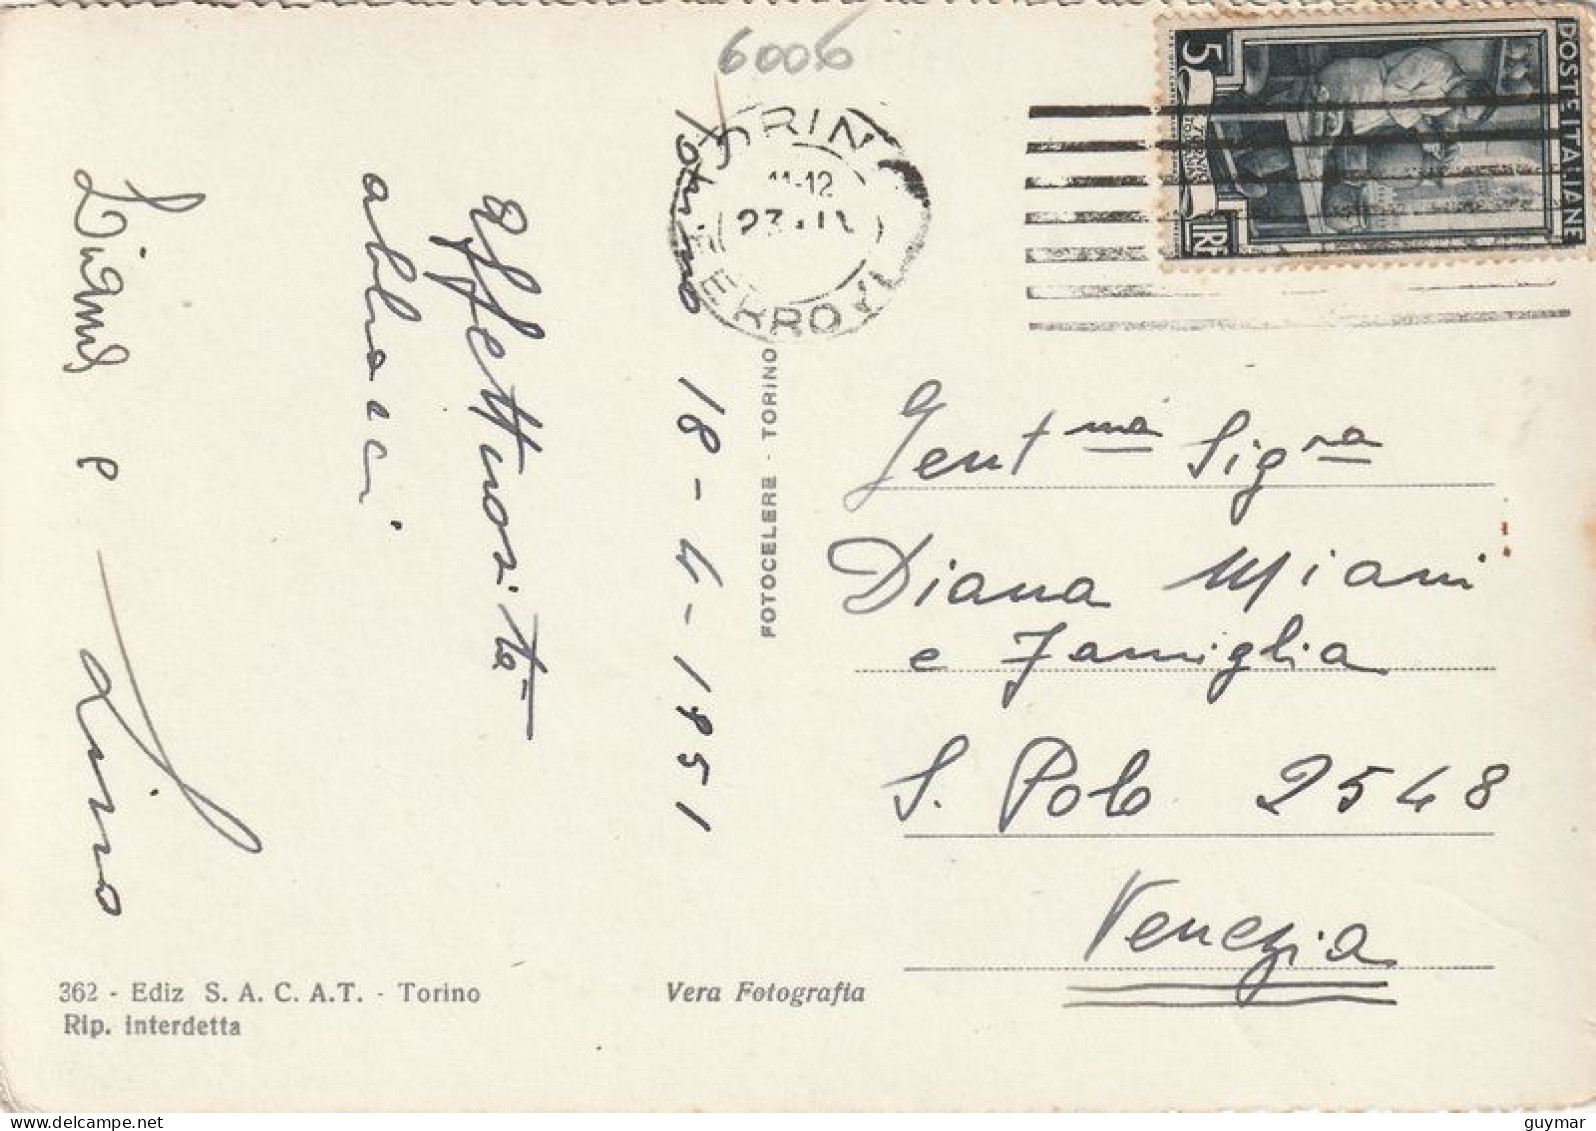 6006
TORINO
11-12
FERROVIA
POSTE ITALIANE
5
LIRE
Torino 18-4-1951
affettuosità
abbracci
Liana e
Lino
FOTOCELERE - TORINO
Gent ma Sig ra
Diana Miani
e Famiglia
S. Polo 2548
Venezia
362 - Ediz S. A. C. A. T. - Torino
Rip. interdetta
Vera Fotografia
guymar